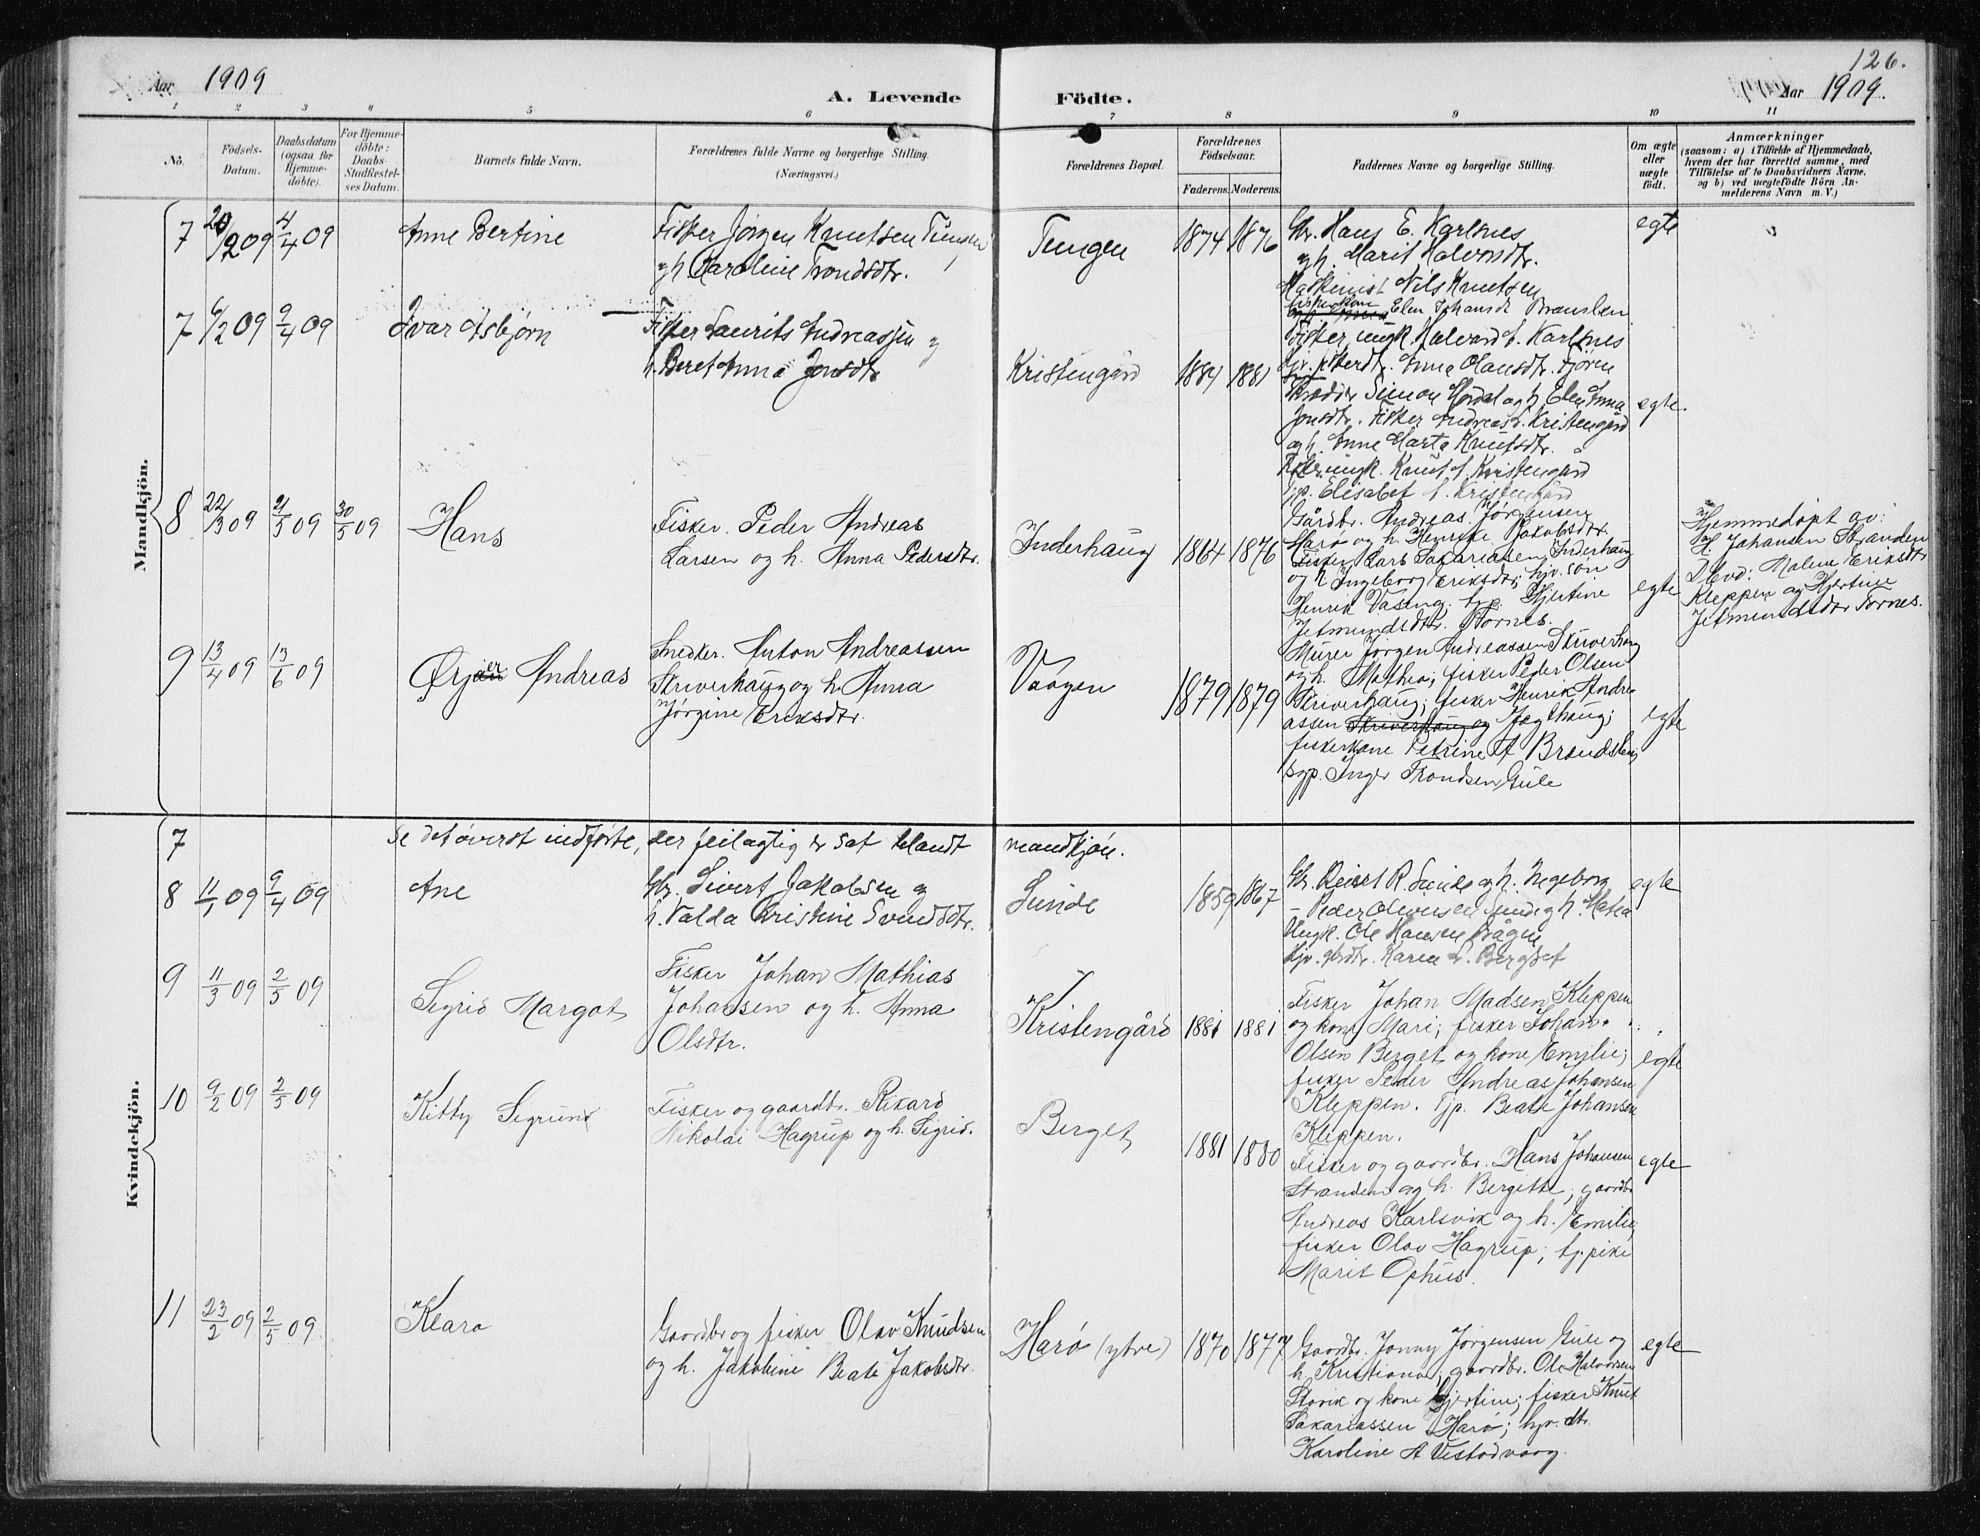 126.
Aar 1909
A. Levende Födte.
Aar 1909.
1 2 3 4 5 6 7 8 9 10 11
No.
Födsels-Datum.
Daabsdatum (ogsaa for Hjemmedöbte).
For Hjemmedöbte: Daabs-Stadfæstelses Datum.
Barnets fulde Navn.
Forældrenes fulde Navne og borgerlige Stilling.
(Næringsvei.)
Forældrenes Bopæl.
Forældrenes Födselsaar.
Faderens. Moderens.
Faddernes Navne og borgerlige Stilling.
Om ægte eller uægte födt.
Anmærkninger
(saasom: a) i Tilfælde af Hjemmedaab,
hvem der har forrettet samme, med
Tilföielse af to Daabsvidners Navne,
og b) ved uægtefödte Börn Anmelderens Navn m. V.)
Mandkjön.
7 20/2 09 4/4 09 Anne Bertine
Fisker Jörgen Knutsen Tungen
og h. Karoline Trondsdtr.
Tungen 1874 1876
Gbr. Hans E. Karlsnes
og h. Marit Halvorsdtr.
Maskinist Nils Knutsen
fiskerkone Elen Johansdt
Fisker ungk. Halvard Karlsnes
egte
7 6/2 09 9/4 09 Ivar Asbjørn
Fisker Laurits Andreassen og
h. Beret Anna Jonsdtr
Kristengård 1884 1881
Anna Olausdtr.
Simon og h. Elen Anna
Jonsdtr. Fisker Andreas Kristengård
og h. Anne Marta Knutsdtr.
ungk. Knut Kristengård
pp. Elisabet Kristengård
egte.
8 22/3 09 2/5 09 30/5 09 Hans
Fisker. Peder Andreas
Larsen og h. Anna Pedersdtr.
Inderhaug 1864 1876
Gårdbr. Andreas Jørgensen
Harø og h. Henrike Jakobsdtr.
Fisker Lars Sakariasen Inderhaug
og h Ingeborg Eriksdtr; hjv. søn
Henrik Vaseng; Hjertine
Jetmundsdtr. Tornes.
egte
Hjemmedøpt av:
H. Johansen Stranden
D. Malene Eriksdtr
Kleppen og Hjertine
Jetmundsdtr Tornes.
9 13/4 09 13/6 09 Ørjer Andreas
Snedker. Anton Andreassen
Skriverhaug og h. Anna
Jørgine Eriksdtr.
Vaagen 1879 1879
Murer Jørgen Andreassen Skriverhaug
og h. Mathea; fisker Peder Olsen
Skriverhaug; fisker Henrik Andre-
assen Skriverhaug og Jægthaug;
fiskerkone Petrine A
pp. Inger Trondsen Gule
egte
Kvindekjön.
7 Se det øverst indførte, der feilagtig er sat blandt mandkjøn.
8 11/1 09 9/4 09 Ane
Gbr. Sivert Jakobsen og
h. Valda Kristine Svendsdtr.
Sunde 1859 1867
Gbr. R. Sunde og h. Ingeborg
- Peder Olaussen Sunde og h. Matea
Ungk. Ole Hansen Vågen
hjv. gbrdtr. Karen L. Bergset
egte
9 11/3 09 2/5 09 Sigrid Margot
Fisker Johan Mathias
Johansen og h. Anna
Olsdtr.
Kristengård 1881 1881
Fisker Johan Madsen Kleppen
og kone Mari; fisker Johan
Olsen Berget og kone Emilie;
fisker Peder Andreas Johansen
Kleppen. Tjp. Beate Johansen
Kleppen.
egte
10 9/2 09 2/5 09 Kitty Sigrund
Fisker og gaardbr. Rikard
Nikolai Hagrup og h. Sigrid.
Berget 1881 1880
Fisker og gaardbr. Hans Johansen
Stranden og h. Bergette; gaardbr
Andreas Karlsvik og h. Emilie;
fisker Olav Hagrup; tj.pike
Marit Ophus.
egte
11 23/2 09 2/5 09 Klara
Gaardbr og fisker Olav Knudsen
og h. Jakobine Beate Jakobsdtr.
Harø (ytre) 1870 1877
Gaardbr. Jonny Jørgensen Gule og
h. Kristiana; gaardbr. Ole Halvorsen
Stavik og kone Hjertine; fisker Knut
Sakariassen Harø; hjv. dtr.
Karoline A Vestadvaag.
egte